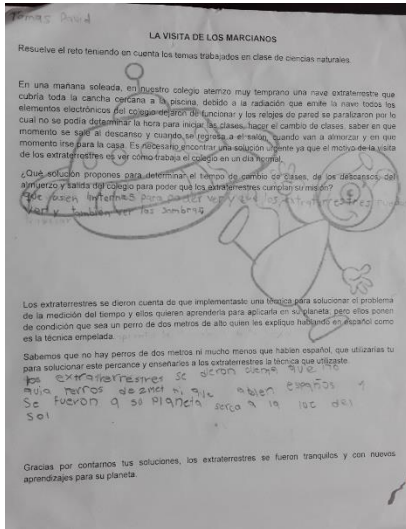 Tomas David
LA VISITA DE LOS MARCIANOS
Resuelve el reto teniendo en cuenta los temas trabajados en clase de ciencias naturales.
En una mañana soleada, en nuestro colegio aterrizo muy temprano una nave extraterrestre que
cubría toda la cancha cercana a la piscina, debido a la radiación que emite la nave todos los
elementos electrónicos del colegio dejaron de funcionar y los relojes de pared se paralizaron por lo
cual no se podía determinar la hora para iniciar las clases, hacer el cambio de clases, saber en que
momento se sale al descanso y cuando se regresa a el salón, cuando van a almorzar y en que
momento irse para la casa. Es necesario encontrar una solución urgente ya que el motivo de la visita
de los extraterrestres es ver cómo trabaja el colegio en un día normal.
¿Qué solución propones para determinar el tiempo de cambio de clases, de los descansos, del
almuerzo y salida del colegio para poder que los extraterrestres cumplan su misión?
que usen linternas para poder ver y que los extraterrestres
ver y también ver las sombras
Los extraterrestres se dieron cuenta de que implementaste una técnica para solucionar el problema
de la medición del tiempo y ellos quieren aprenderla para aplicarla en su planeta, pero ellos ponen
de condición que sea un perro de dos metros de alto quien les explique hablando en español como
es la técnica empelada.
Sabemos que no hay perros de dos metros ni mucho menos que hablen español, que utilizarías tu
para solucionar este percance y enseñarles a los extraterrestres la técnica que utilizaste.
los extraterrestres se dieron cuenta que no
avia perros de 2 met ni que ablen español y
se fueron a su planeta serca a la luz del
sol
Gracias por contarnos tus soluciones, los extraterrestres se fueron tranquilos y con nuevos
aprendizajes para su planeta.